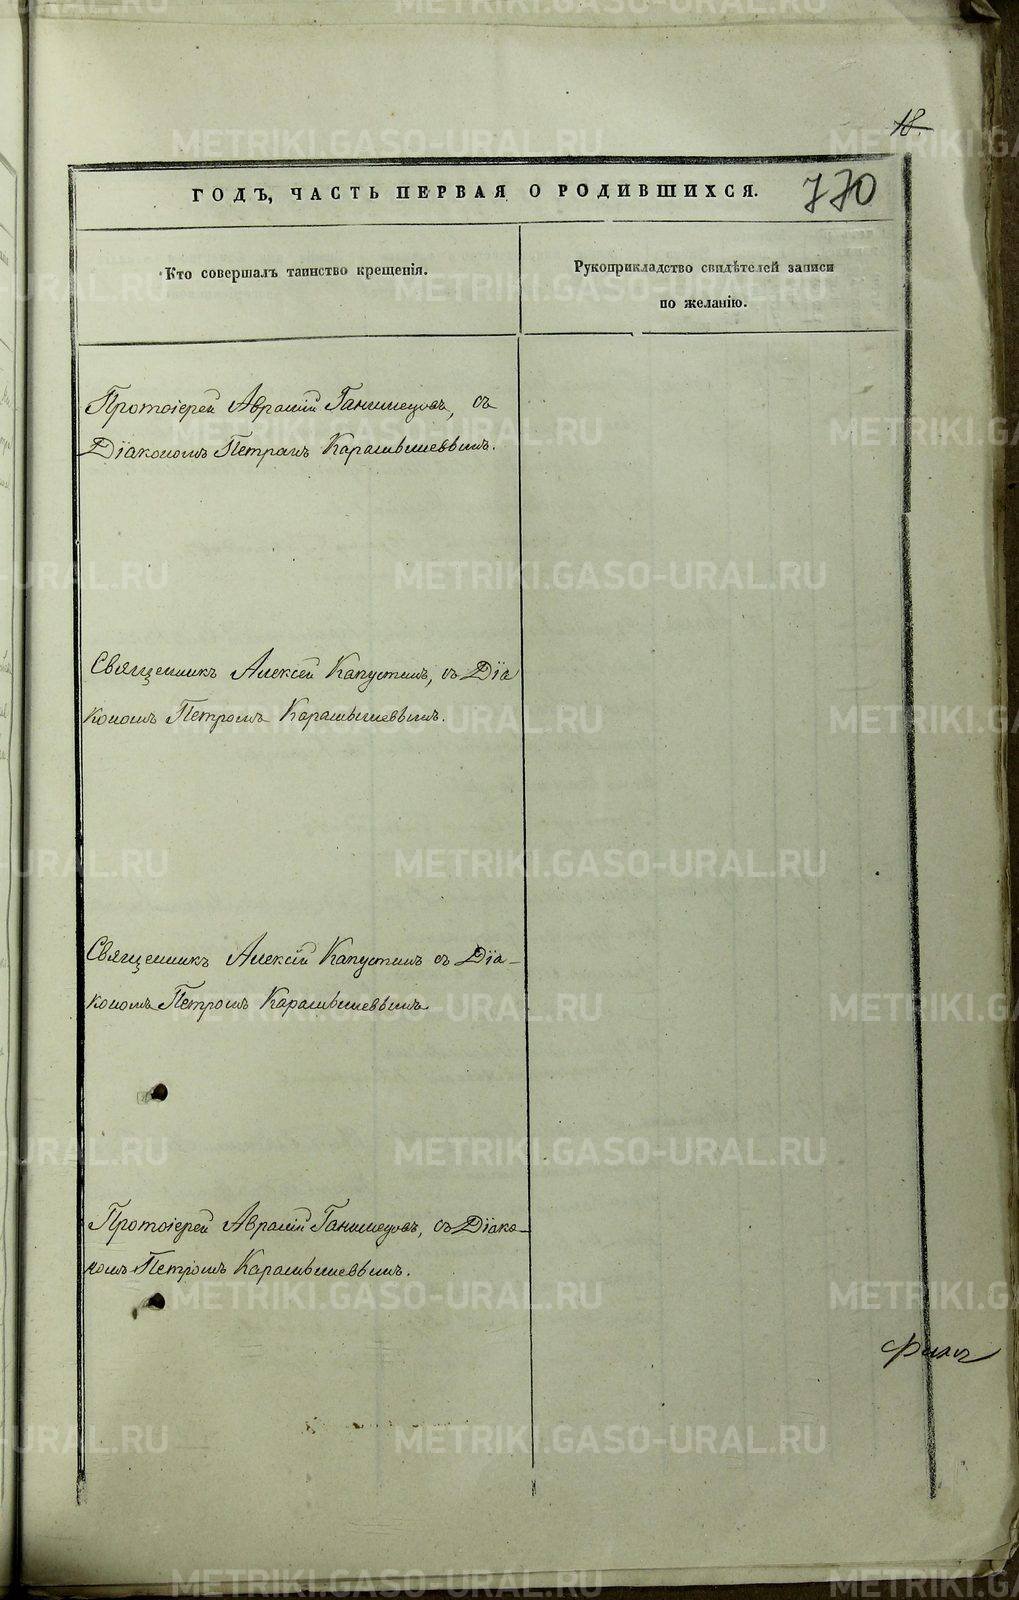 18.
ГОДЪ, ЧАСТЬ ПЕРВАЯ О РОДИВШИХСЯ.
770
Кто совершалъ таинство крещенія.
Рукоприкладство свидѣтелей записи
по желанію.
Протоіерей Аврамій Ганимедовъ, съ
Діакономъ Петромъ Карамышевымъ.
Священникъ Алексѣй Капустинъ, съ Діа
кономъ Петромъ Карамышевымъ.
Священникъ Алексій Капустинъ съ Діа-
кономъ Петромъ Карамышевымъ
Протоіерей Аврамій Ганимедовъ, съ Діако-
номъ Петромъ Карамышевымъ.
METRIKI.GASO-URAL.RU